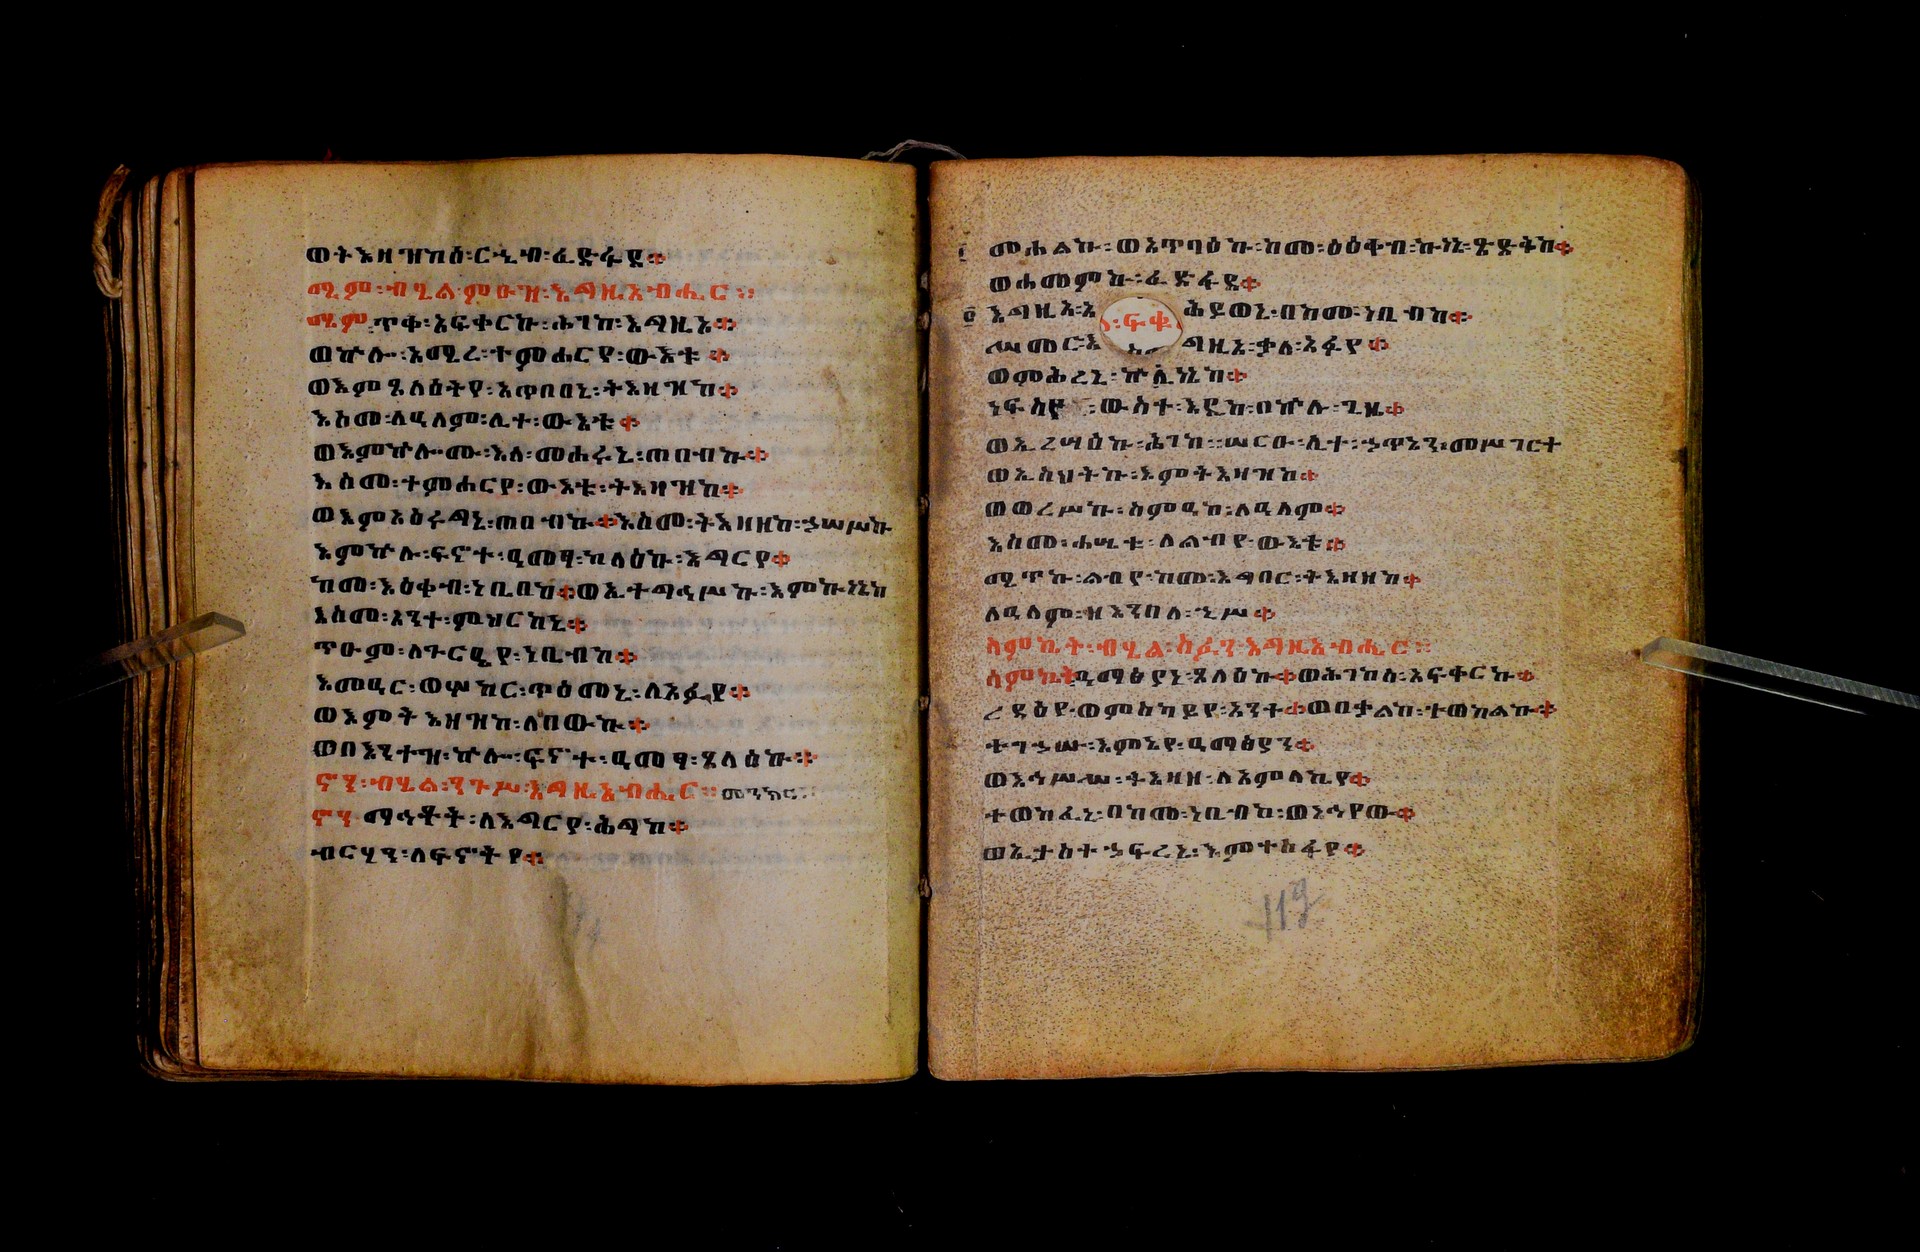 ወትእዛዝከሰ፡ርኂብ፡ፈድፋደ፨
ሜም፡ብሂል፡ምዑዝ፡እግዚአብሔር፡፡
ሜም፡ጥቀ፡አፍቀርኩ፡ሕገከ፡እግዚኦ፨
ወኵሎ፡አሚረ፡ተምሐርየ፡ውእቱ፨
ወእምጸላዕትየ፡አጥበበኒ፡ትእዛዝከ፨
እስመ፡ለዓለም፡ሊተ፡ውእቱ፨
ወእምኵሎሙ፡እለ፡መሐሩኒ፡ጠበብኩ፨
እስመ፡ተምሐርየ፡ውእቱ፡ትእዛዝከ፨
ወእምአዕሩግኒ፡ጠበብኩ፨እስመ፡ትእዛዘከ፡ኃሠሥኩ
እምኵሉ፡ፍኖተ፡ዓመፃ፡ከላዕኩ፡እግርየ፨
ከመ፡እዕቀብ፡ነቢበከ፨ወኢተግሕሥኩ፡እምኵነኔከ
እስመ፡አንተ፡ምህርከኒ፨
ጥዑም፡ለጉርዔየ፡ነቢብከ፨
እመዓር፡ወሦከር፡ጥዕመኒ፡ለአፉየ፨
ወእምትእዛዝከ፡ለበውኩ፨
ወበእንተዝ፡ኵሎ፡ፍኖተ፡ዓመፃ፡ጸላዕኩ፨
ኖን፡ብሂል፡ንጉሥ፡እግዚአብሔር፡፡መንክር፡፡
ኖን፡ማኅቶት፡ለእግርየ፡ሕግከ፨
ብርሃን፡ለፍኖትየ፨
መሐልኩ፡ወአጥባዕኩ፡ከመ፡ዕዕቀብ፡ኩነኔ፡ጽድቅከ፨
ወሐመምኩ፡ፈድፋደ፨
እግዚኦ፡አሕይወኒ፡በከመ፡ነቢብከ፨
፡ፍቁ
ሥመር፡እግዚኦ፡ቃለ፡አፉየ፨
ወምሕረኒ፡ኵነኔከ፨
ነፍስየ፡ውስተ፡እዴከ፡በኵሉ፡ጊዜ፨
ወኢረሣዕኩ፡ሕገከ፡፡ሠርዑ፡ሊተ፡ኃጥኣን፡መሥገርተ
ወኢስህትኩ፡እምትእዛዝከ፨
ወወረሥኩ፡ስምዓከ፡ለዓለም፨
እስመ፡ሐሤቱ፡ለልብየ፡ውእቱ፨
ሜጥኩ፡ልብየ፡ከመ፡እግበር፡ትእዛዘከ፨
ለዓለም፡ዘእንበለ፡ኂሥ፨
ሳምኬት፡ብሂል፡ስፉን፡እግዚአብሔር፡፡
ሳምኬት፡ዓማፅያነ፡ጸላዕኩ፨ወሕገከሰ፡አፍቀርኩ፨
ረዳዕየ፡ወምስካይየ፡አንተ፨ወበቃልከ፡ተወከልኩ፨
ተገኃሡ፡እምኔየ፡ዓማፅያን፨
ወእኅሥሥ፡ትእዛዘ፡ለአምላኪየ፨
ተወከፈኒ፡በከመ፡ነቢብከ፡ወእኅየው፨
ወኢታስተኃፍረኒ፡እምተስፋየ፨
119